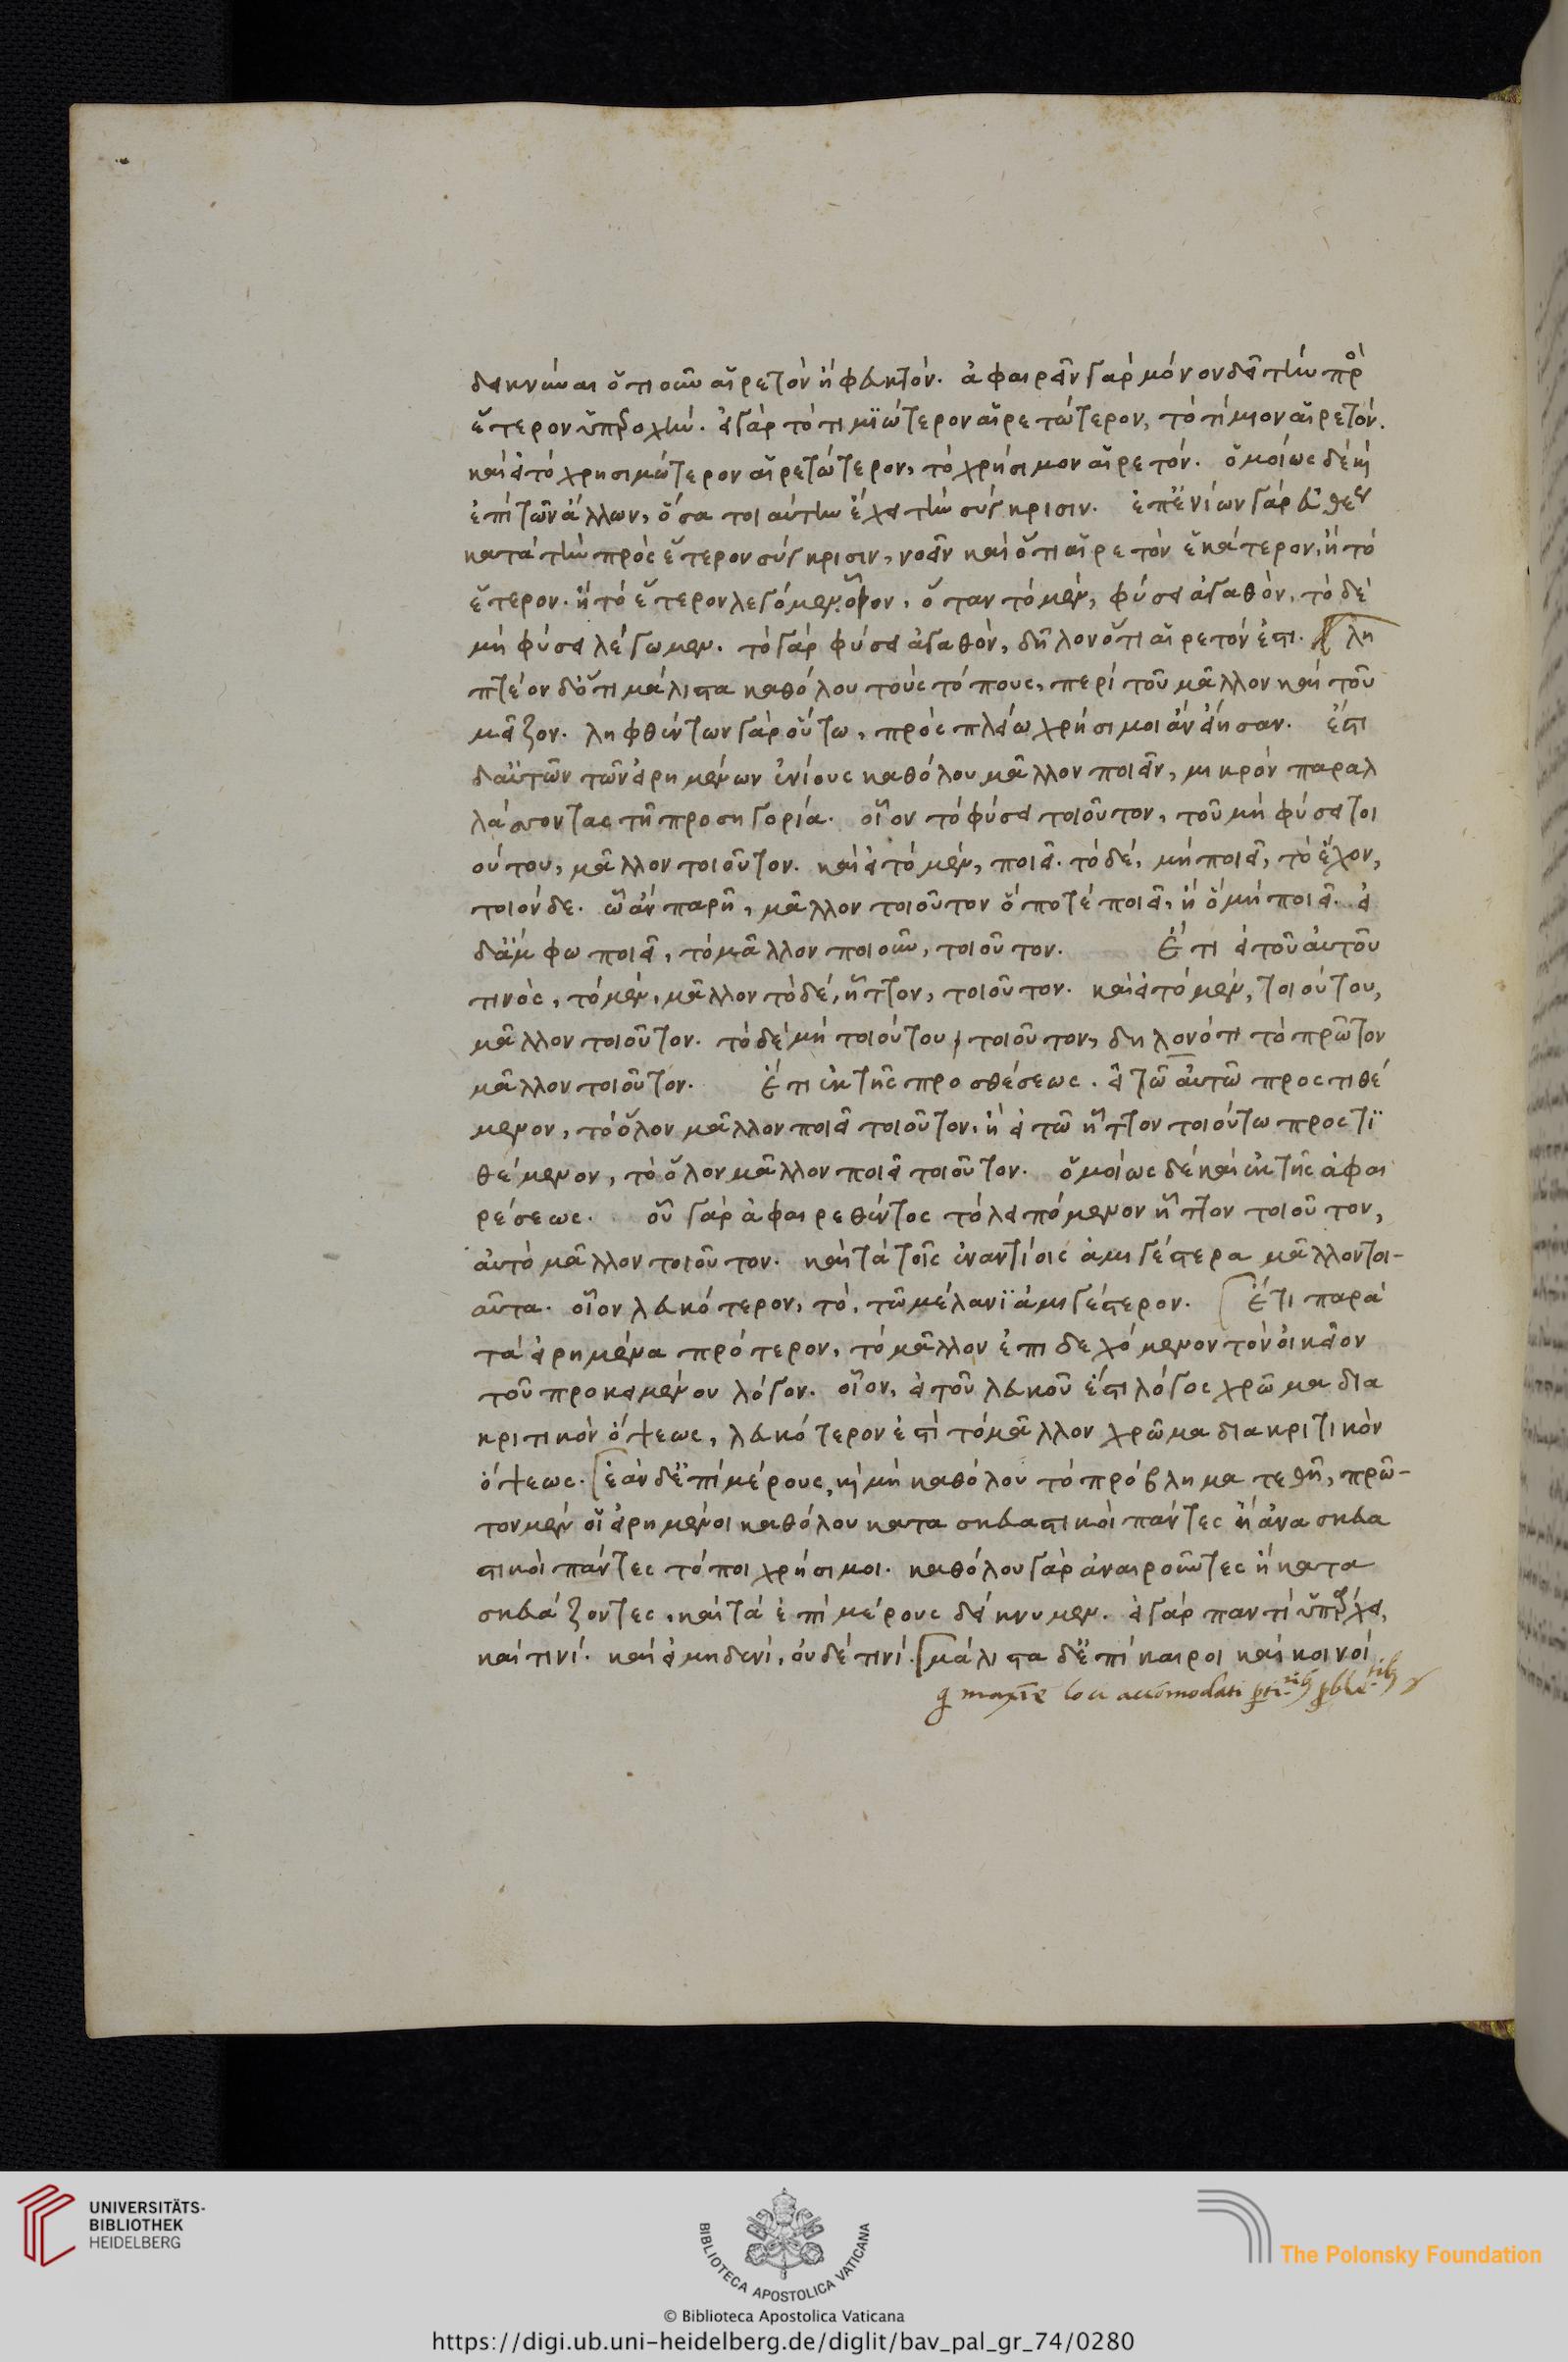 δεικνύναι ὅτιοῦν αἱρετὸν ἢ φευκτόν. ἀφαιρεῖν γὰρ μόνον δεῖ τὴν πρὸ
ἕτερον ὑπεροχήν. εἰ γὰρ τὸ τιμϊώτερον αἱρετώτερον, τὸ τίμιον αἱρετόν.
καὶ εἰ τὸ χρησιμώτερον αἱρετώτερον, τὸ χρήσιμον αἱρετόν. ὁμοίως δὲ κ
ἐπὶ τῶν ἄλλων, ὅσα τοιαύτην ἔχει τὴν σύγκρισιν. ἐπ' ἐνίων γὰρ εὐθέως
κατὰ τὴν πρὸς ἕτερον σύγκρισιν, νοεῖν καὶ ὅτι αἱρετὸν ἑκάτερον, ἢ τὸ
ἕτερον. ἢ τὸ ἕτερον λεγόμενον, ὅταν τὸ μὲν, φύσει ἀγαθὸν, τὸ δὲ
μὴ φύσει λέγωμεν. τὸ γὰρ φύσει ἀγαθὸν, δῆλον ὅτι αἱρετόν ἐστι. λη
πτέον δ' ὅτι μάλιστα καθόλου τοὺς τόπους, περὶ τοῦ μᾶλλον καὶ τοῦ
μεῖζον. ληφθέντων γὰρ οὕτω, πρὸς πλείω χρήσιμοι ἂν εἴησαν. ἔστι
δ' αὐτῶν τῶν εἰρημένων ἐνίους καθόλου μᾶλλον ποιεῖν, μικρὸν παραλ
λάττοντας τῇ προσηγορίᾳ. οἷον τὸ φύσει τοιοῦτον, τοῦ μὴ φύσει τοι
ούτου, μᾶλλον τοιοῦτον. καὶ εἰ τὸ μὲν, ποιεῖ. τὸ δὲ, μὴ ποιεῖ, τὸ ἔχον,
τοιόνδε. ᾧ ἂν παρῇ, μᾶλλον τοιοῦτον ὅ ποτὲ ποιεῖ, ἢ ὃ μὴ ποιεῖ. εἰ
δ' ἄμφω ποιεῖ, τὸ μᾶλλον ποιοῦν, τοιοῦτον. Ἔτι εἰ τοῦ αὐτοῦ
τινὸς, τὸ μὲν, μᾶλλον τὸ δὲ, ἧττον, τοιοῦτον. καὶ εἰ τὸ μὲν, τοιούτου,
μᾶλλον τοιοῦτον. τὸ δὲ μὴ τοιούτου, τοιοῦτον, δηλονότι τὸ πρῶτον
μᾶλλον τοιοῦτον. Ἔτι ἐκ τῆς προσθέσεως. εἰ τῷ αὐτῷ προςτιθέ
μενον, τὸ ὅλον μᾶλλον ποιεῖ τοιοῦτον, ἢ εἰ τῷ ἧττον τοιούτω προςτϊ
θέμενον, τὸ ὅλον μᾶλλον ποιεῖ τοιοῦτον. ὁμοίως δὲ καὶ ἐκ τῆς ἀφαι
ρέσεως. οὗ γὰρ ἀφαιρεθέντος τὸ λειπόμενον ἧττον τοιοῦτον,
αὐτὸ μᾶλλον τοιοῦτον. καὶ τὰ τοῖς ἐναντίοις ἀμιγέστερα μᾶλλον τοι-
αῦτα. οἷον λευκότερον, τὸ, τῷ μέλανϊ ἀμιγέστερον. Ἔτι παρὰ
τὰ εἰρημένα πρότερον, τὸ μᾶλλον ἐπιδεχόμενον τὸν οἰκεῖον
τοῦ προκειμένου λόγον. οἷον, εἰ τοῦ λευκοῦ ἐστι λόγος χρῶμα δια
κριτικὸν ὄψεως, λευκότερον ἐστὶ τὸ μᾶλλον χρῶμα διακριτικὸν
ὄψεως. ἐὰν δ' ἐπὶ μέρους, κ μὴ καθόλου τὸ πρόβλημα τεθῇ, πρῶ-
τον μὲν οἱ εἰρημένοι καθόλου κατασκευαστικοὶ πάντες ἢ ἀνασκευα
στικοὶ πάντες τόποι χρήσιμοι. καθόλου γὰρ ἀναιροῦντες ἢ κατα
σκευάζοντες, καὶ τὰ ἐπὶ μέρους δείκνυμεν. εἰ γὰρ παντὶ ὑπάρχει,
καὶ τινί. καὶ εἰ μηδενὶ, οὐδὲ τινί. μάλιστα δ' ἐπίκαιροι καὶ κοινοί
maxie loci accomodati
UNIVERSITÄTS-
BIBLIOTHEK
HEIDELBERG
BIBLIOTECA APOSTOLICA VATICANA
The Polonsky Foundation
© Biblioteca Apostolica Vaticana
https://digi.ub.uni-heidelberg.de/diglit/bav_pal_gr_74/0280